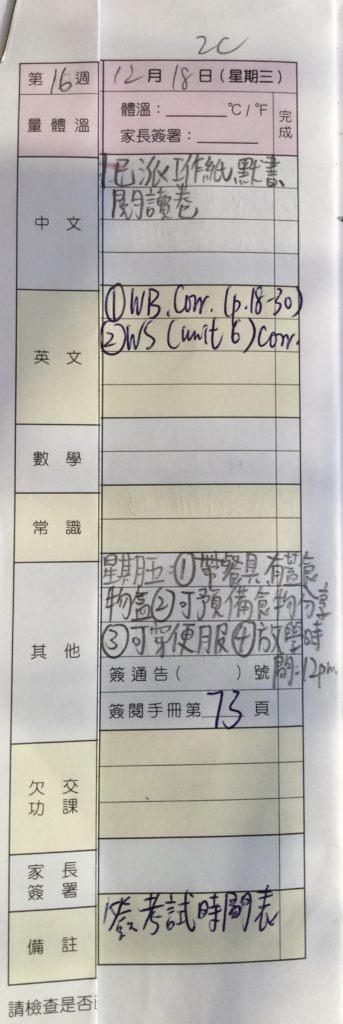 2C
第16週 12月18日(星期三)
量體溫 體溫:______ °C/°F 完成
家長簽署:______
中文 已派工作紙、默書、
閱讀卷
英文 ①WB.Corr.(p.18-30)
②WS (unit 6) Corr.
數學
常識
其他 星期五:①帶餐具,有蓋食
物盒②可預備食物分享
③可穿便服④放學時
間:12pm
簽通告( )號
簽閱手冊第73頁
欠交
功課
家長
簽署
備註 考試時間表
請檢查是否